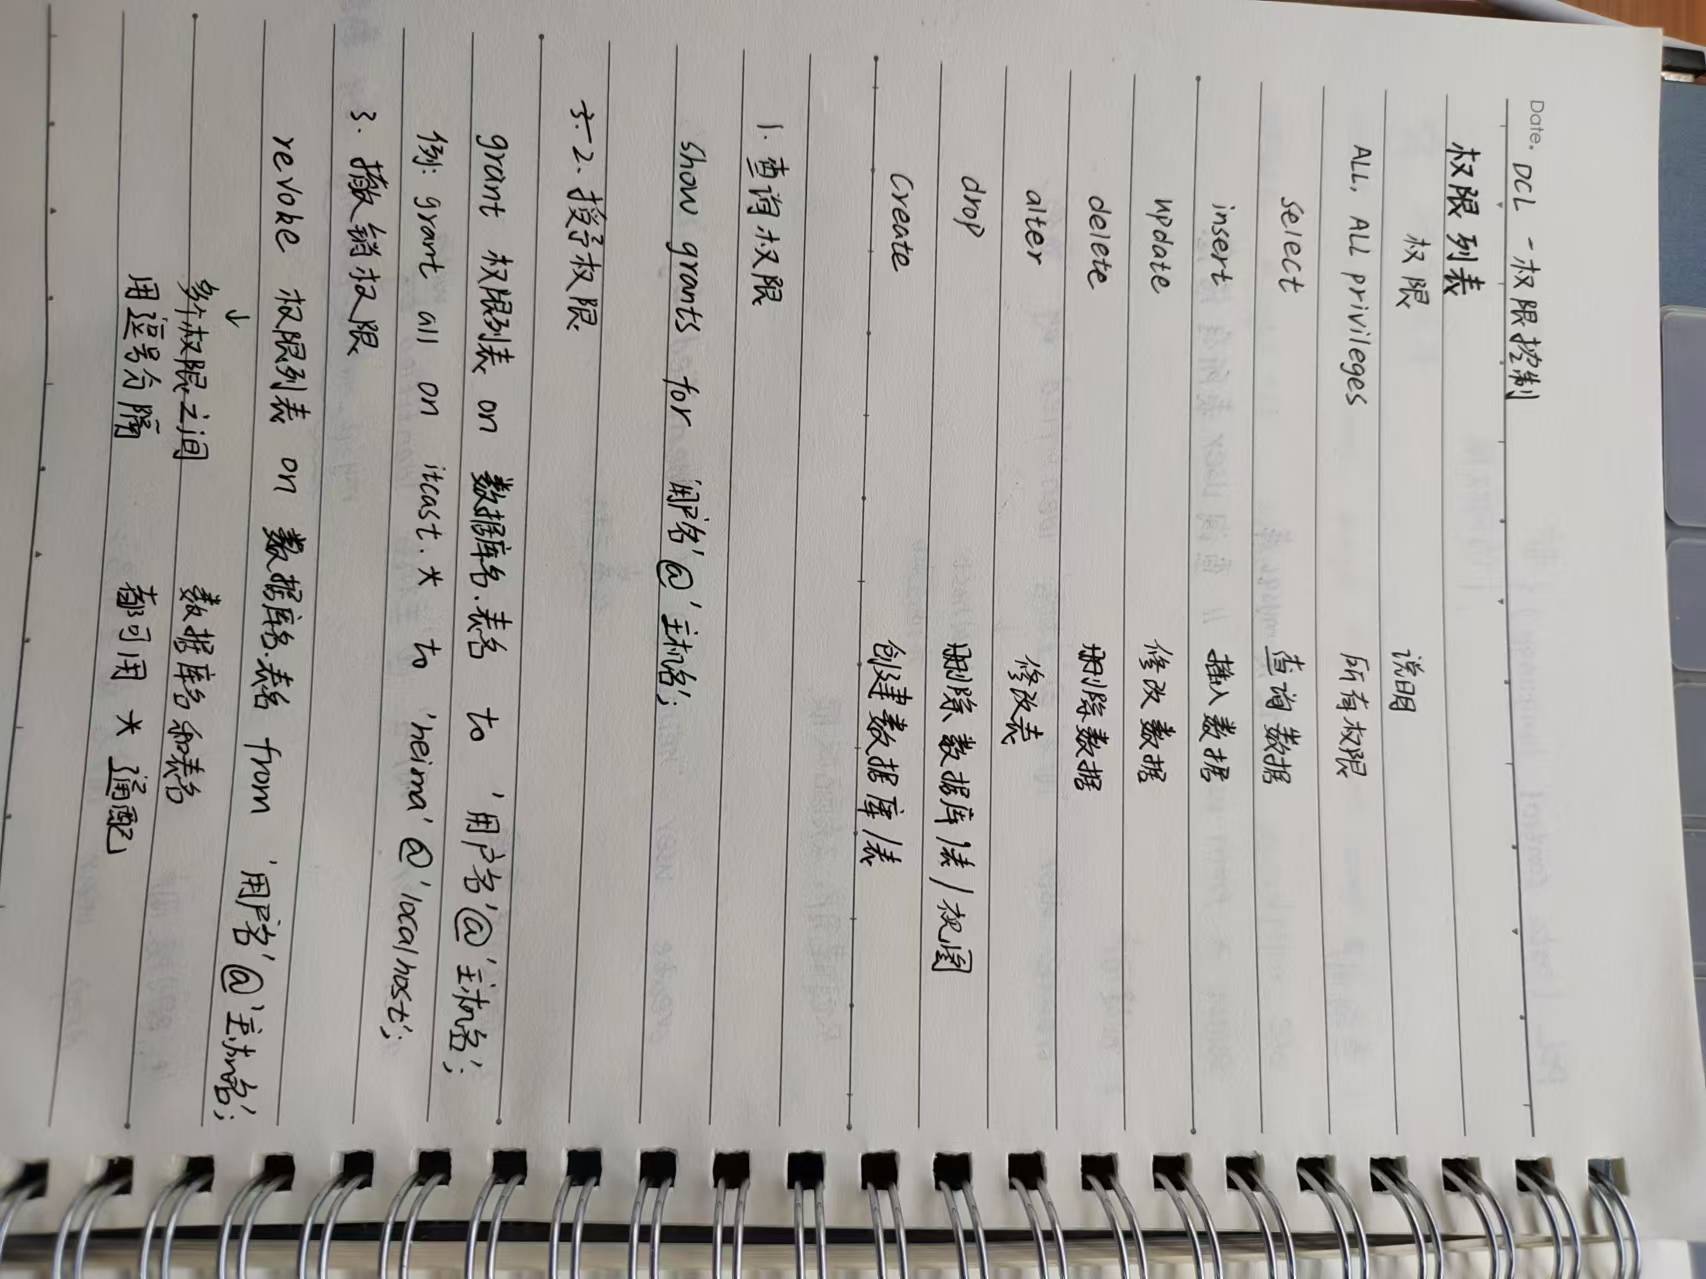 Date. DCL - 权限控制
权限列表
权限 说明
ALL, ALL privileges 所有权限
select 查询数据
insert 插入数据
update 修改数据
delete 删除数据
alter 修改表
drop 删除数据库/表/视图
Create 创建数据库/表
1. 查询权限
show grants for '用户名'@'主机名';
3. 2. 授予权限
grant 权限列表 on 数据库名.表名 to '用户名'@'主机名';
例: grant all on itcast.* to 'heima'@'localhost';
3. 撤销权限
revoke 权限列表 on 数据库名.表名 from '用户名'@'主机名';
↓
多个权限之间 数据库名和表名
用逗号分隔 都可用 * 通配